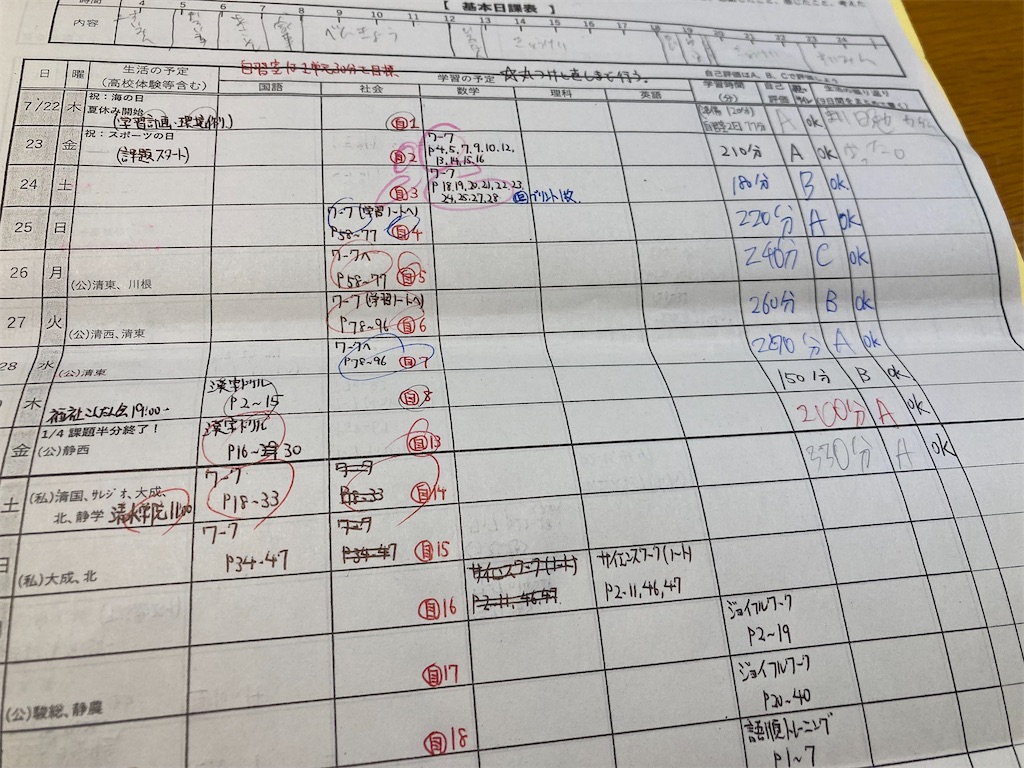 時間
【 基本日課表 】
4 5 6 7 8 9 10 11 12 13 14 15 16 17 18 19 20 21 22 23 24
内容
べんきょう
自習室は2単元30分で目標 ☆丸つけし直しまで行う。
日 曜 生活の予定 学習の予定
(高校体験等含む) 国語 社会 数学 理科 英語 学習時間(分) 自己評価
自己評価はA、B、Cで評価しよう
7/22 木 祝:海の日
夏休み開始
(学習計画・環境作り) 自1 A ok
23 金 祝:スポーツの日
(課題スタート) 自2 ワーク
P4,5,7,9,10,12,
13,14,15,16 210分 A ok
24 土 自3 ワーク
P18,19,20,21,22,23
24,25,27,28 自プリント1枚 180分 B ok
25 日 ワーク(学習ノートへ)
P58~77 自4 220分 A ok
26 月 (公)清東、川根 ワークへ
P58~77 自5 240分 C ok
27 火 (公)清西、清東 ワーク(学習ノートへ)
P78~96 自6 260分 B ok
28 水 (公)清東 ワークへ
P78~96 自7 A ok
木 福祉こんだん会19:00~ 漢字ドリル
P2~15 自8 150分 B ok
金 1/4 課題半分終了!
(公)静西 漢字ドリル
P16~30 自13 A ok
土 (私)清国、サレジオ、大成、
北、静学 清水学院11:00 ワーク
P18~33 ワーク
P18~33 自14 330分 A ok
日 (私)大成、北 ワーク
P34~47 ワーク
P34~47 自15
サイエンスワーク(ノート)
P2~11,46,47 サイエンスワーク(ノート)
P2~11,46,47
自16 ジョイフルワーク
P2~19
(公)駿総、静農 自17 ジョイフルワーク
P20~40
自18 語順トレーニング
P1~7